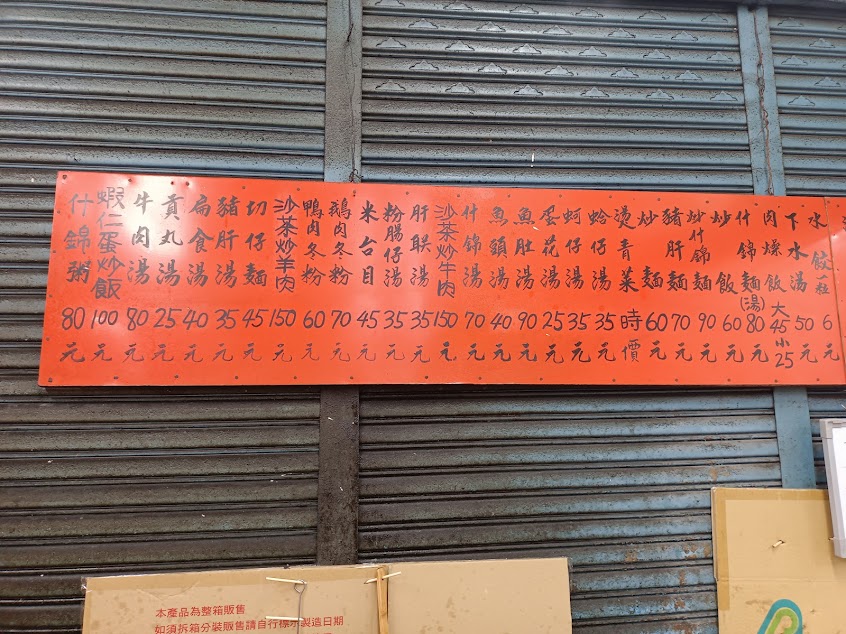 水餃一粒6元
下水湯50元
肉燥飯大45小25
什錦麵(湯)80元
炒飯60元
炒什錦麵90元
豬肝麵70元
炒麵60元
燙青菜時價
蛤仔湯35元
蚵仔湯35元
蛋花湯25元
魚肚湯90元
魚頭湯40元
什錦湯70元
沙茶炒牛肉150元
肝联湯35元
粉腸仔湯35元
米台目45元
鵝肉冬粉70元
鴨肉冬粉60元
沙茶炒羊肉150元
切仔麵45元
豬肝湯35元
扁食湯40元
貢丸湯25元
牛肉湯80元
蝦仁蛋炒飯100元
什錦粥80元
本產品為整箱販售
如須拆箱分裝販售請自行標示製造日期